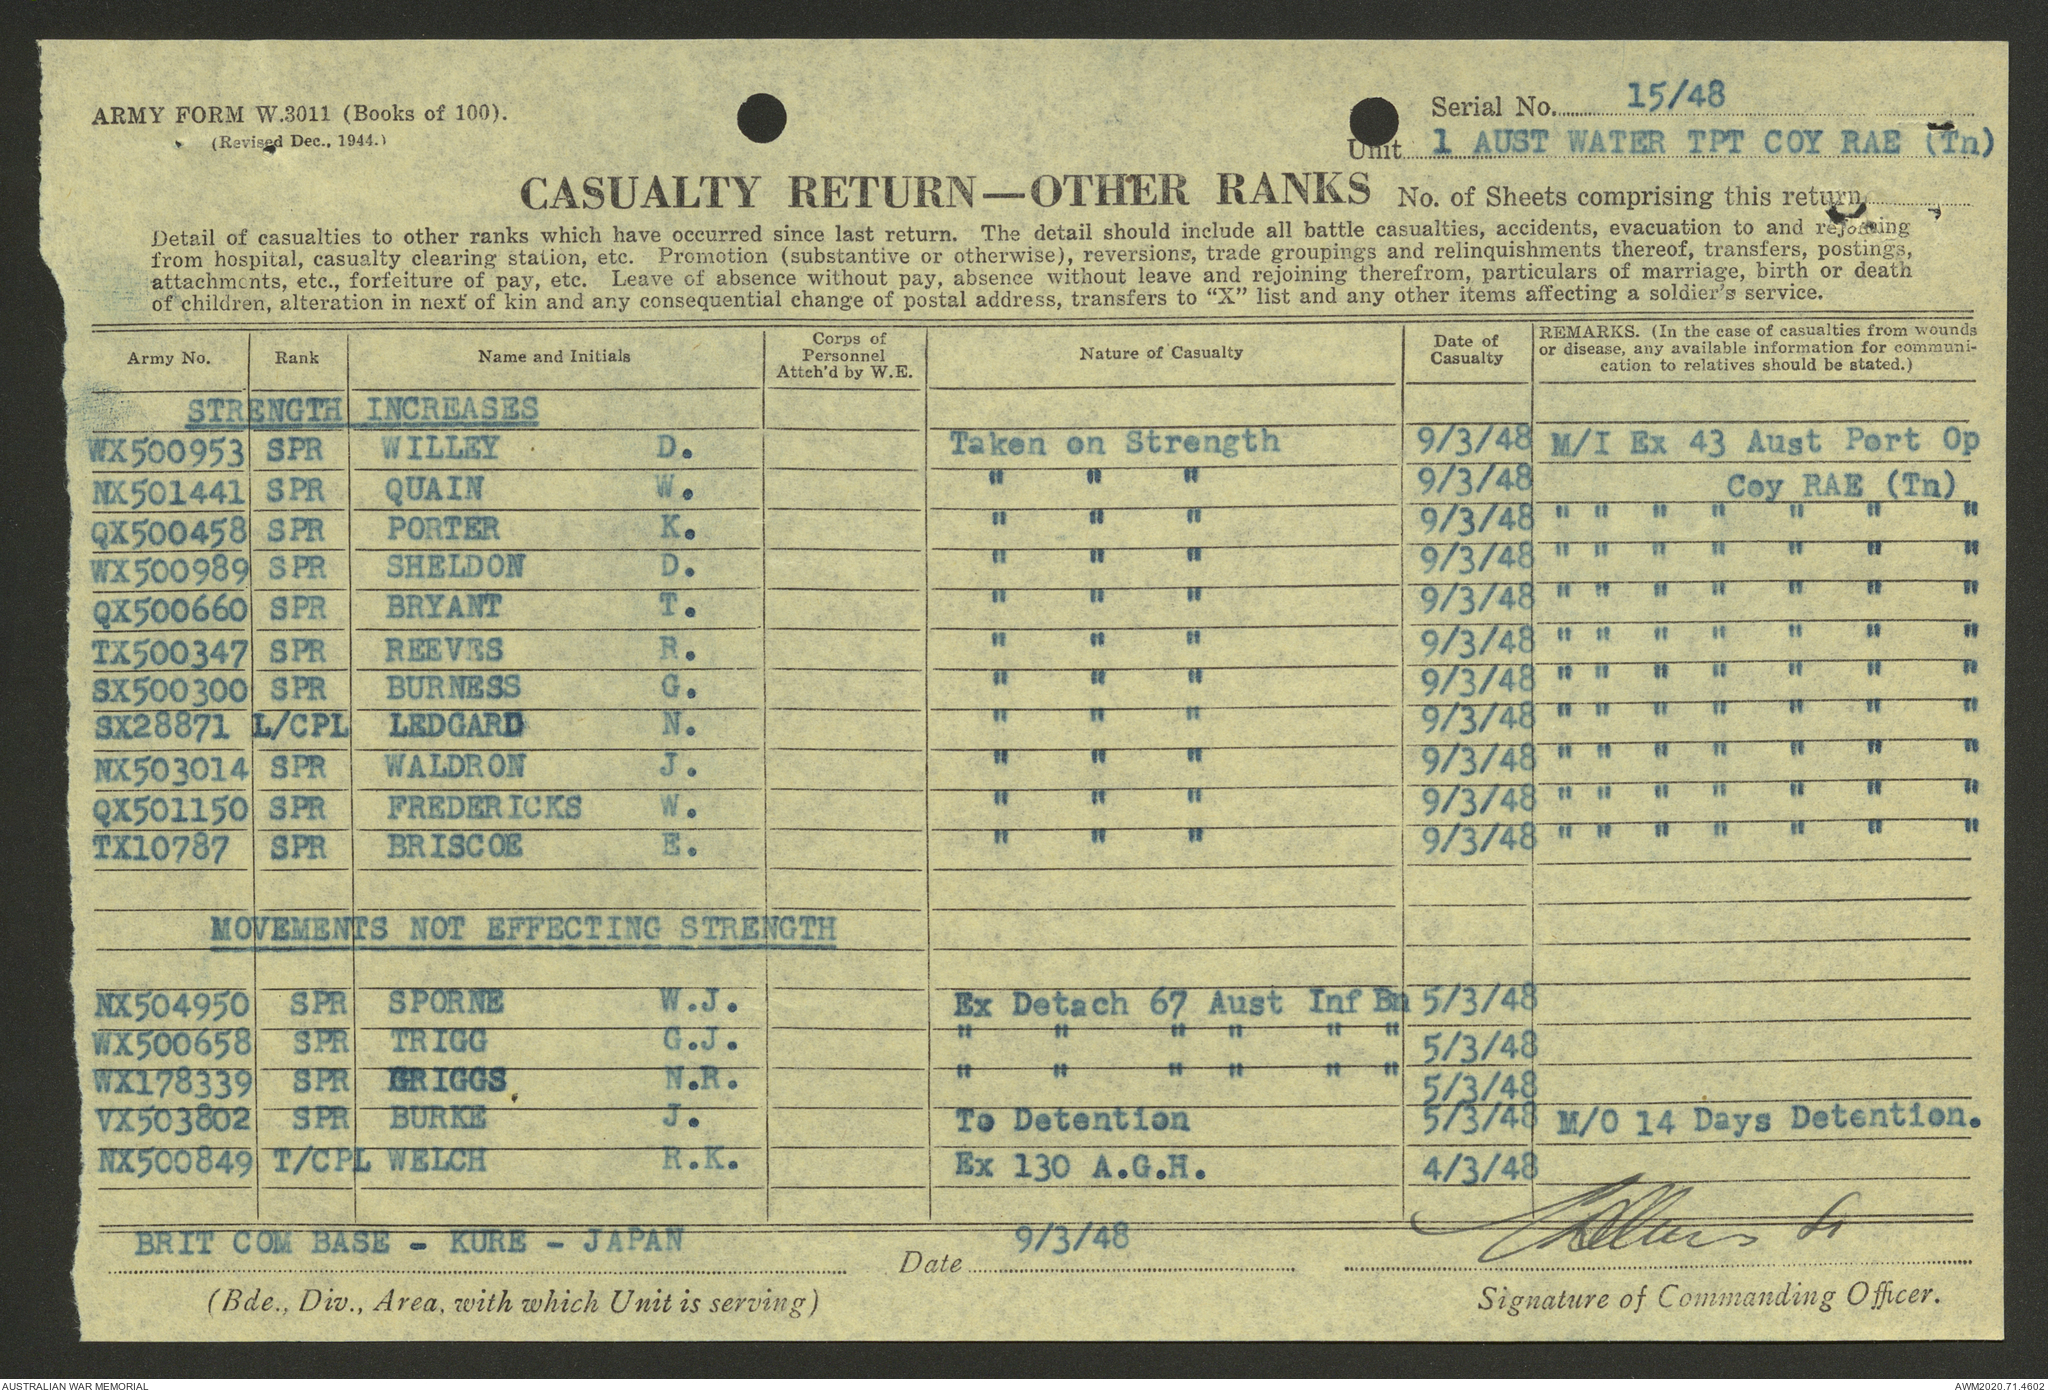 ARMY FORM W.3011 (Books of 100).
(Revised Dec., 1944.)
Serial No. 15/48
Unit 1 AUST WATER TPT COY RAE (Tn)
CASUALTY RETURN—OTHER RANKS No. of Sheets comprising this return
Detail of casualties to other ranks which have occurred since last return. The detail should include all battle casualties, accidents, evacuation to and rejoining
from hospital, casualty clearing station, etc. Promotion (substantive or otherwise), reversions, trade groupings and relinquishments thereof, transfers, postings,
attachments, etc., forfeiture of pay, etc. Leave of absence without pay, absence without leave and rejoining therefrom, particulars of marriage, birth or death
of children, alteration in next of kin and any consequential change of postal address, transfers to “X” list and any other items affecting a soldier's service.
Army No. Rank Name and Initials Corps of Personnel Attch'd by W.E. Nature of Casualty Date of Casualty REMARKS. (In the case of casualties from wounds or disease, any available information for communi-cation to relatives should be stated.)
STRENGTH INCREASES
WX500953 SPR WILLEY D. Taken on Strength 9/3/48 M/I Ex 43 Aust Port Op
NX501441 SPR QUAIN W. " " " 9/3/48 Coy RAE (Tn)
QX500458 SPR PORTER K. " " " 9/3/48 " " " " " " "
WX500989 SPR SHELDON D. " " " 9/3/48 " " " " " " "
QX500660 SPR BRYANT T. " " " 9/3/48 " " " " " " "
TX500347 SPR REEVES R. " " " 9/3/48 " " " " " " "
SX500300 SPR BURNESS G. " " " 9/3/48 " " " " " " "
SX28871 L/CPL LEDGARD N. " " " 9/3/48 " " " " " " "
NX503014 SPR WALDRON J. " " " 9/3/48 " " " " " " "
QX501150 SPR FREDERICKS W. " " " 9/3/48 " " " " " " "
TX10787 SPR BRISCOE E. " " " 9/3/48 " " " " " " "
MOVEMENTS NOT EFFECTING STRENGTH
NX504950 SPR SPORNE W.J. Ex Detach 67 Aust Inf Bn 5/3/48
WX500658 SPR TRIGG G.J. " " " " " " 5/3/48
WX178339 SPR GRIGGS N.R. " " " " " " 5/3/48
VX503802 SPR BURKE J. To Detention 5/3/48 M/O 14 Days Detention.
NX500849 T/CPL WELCH R.K. Ex 130 A.G.H. 4/3/48
BRIT COM BASE - KURE - JAPAN
Date 9/3/48
(Bde., Div., Area, with which Unit is serving)
Signature of Commanding Officer.
AUSTRALIAN WAR MEMORIAL
AWM2020.71.4602